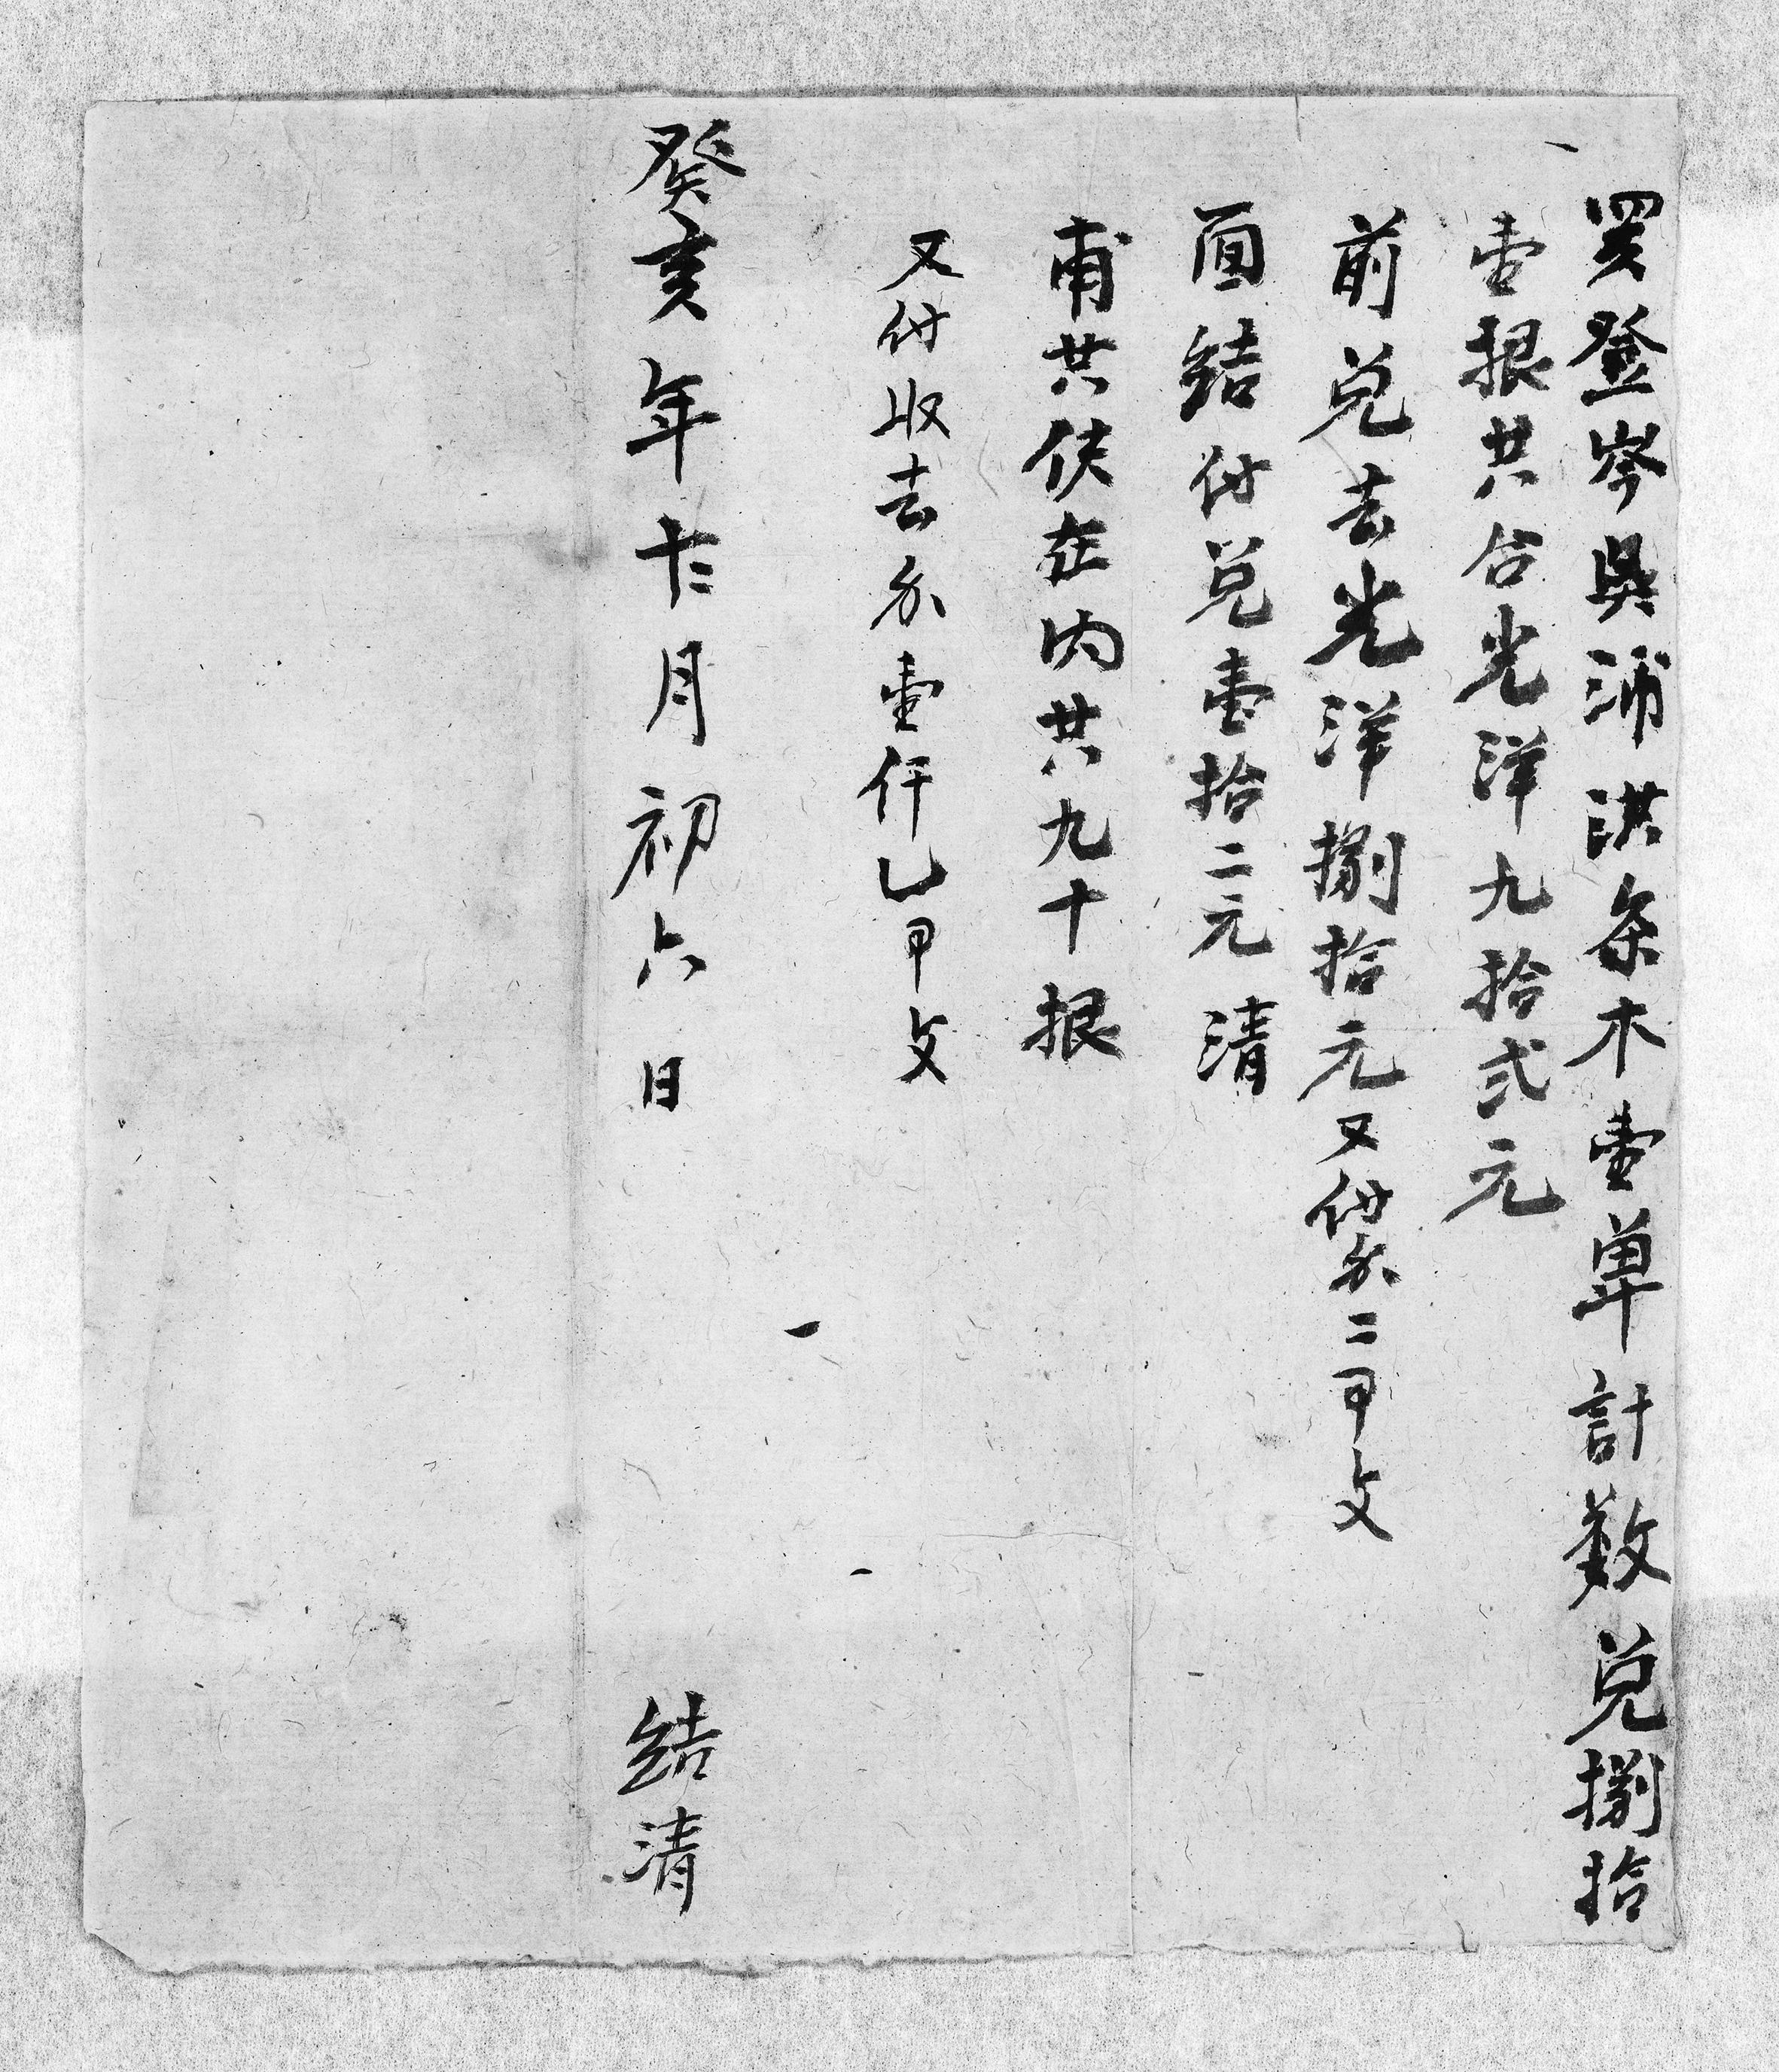 买登岑吳浦洪条木壹单計数兑捌拾
壹根共合光洋九拾弍元
前兑去光洋捌拾元又付 二甲文
面结付兑壹拾二元清
甫共 在内共九十根
又付收去 壹仟乙甲文
癸亥年 月初六日 结清